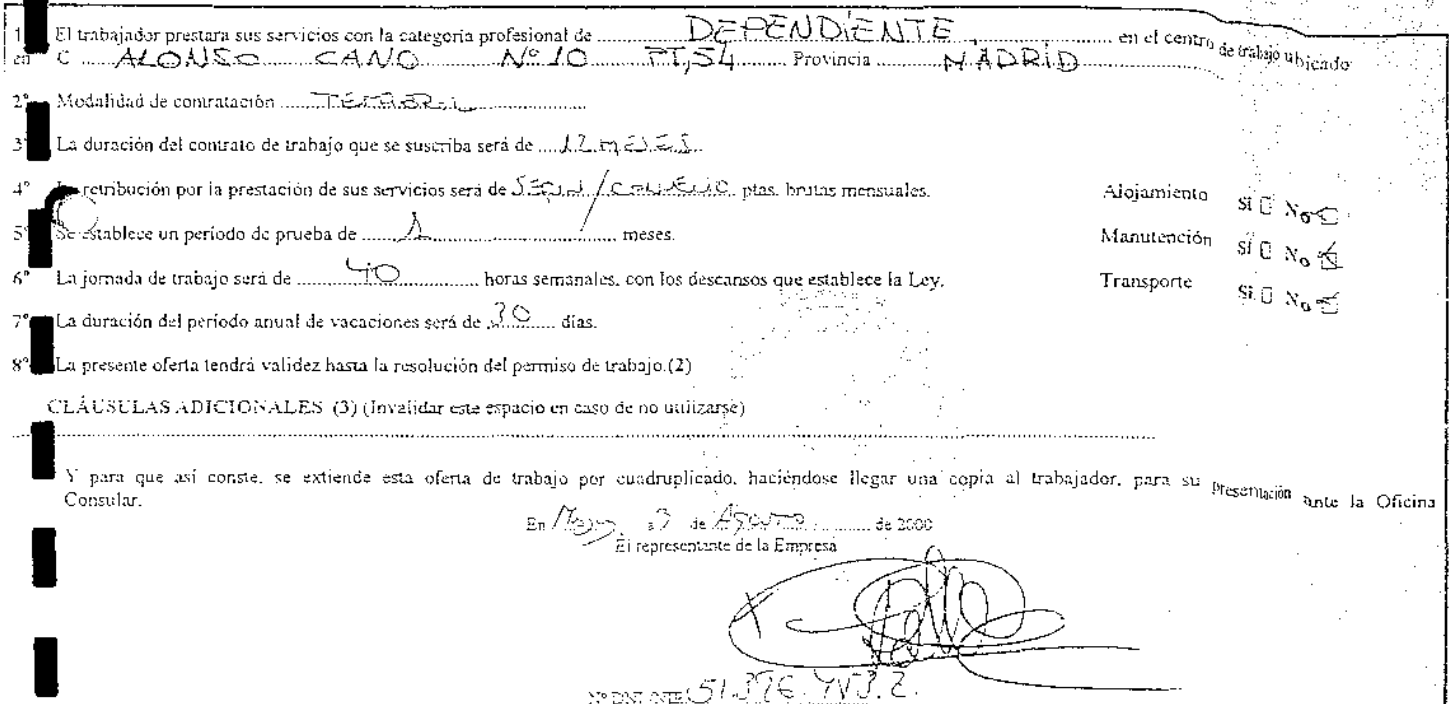 1º El trabajador prestara sus servicios con la categoria profesional de ........ DEPENDIENTE ........ en el centro de trabajo ubicado
en C ALONSO CANO Nº 10 PT, 54 Provincia MADRID
2º Modalidad de contratación
3º La duración del contrato de trabajo que se suscriba será de 12 meses
4º La retribución por la prestación de sus servicios será de SEGUN / CONVENIO ptas. brutas mensuales.
Alojamiento SÍ No
5º Se establece un período de prueba de 1 meses.
Manutención SÍ No
6º La jornada de trabajo será de 40 horas semanales, con los descansos que establece la Ley.
Transporte SÍ No
7º La duración del período anual de vacaciones será de 30 días.
8º La presente oferta tendrá validez hasta la resolución del permiso de trabajo.(2)
CLÁUSULAS ADICIONALES (3) (Invalidar este espacio en caso de no utilizarse)
Y para que así conste, se extiende esta oferta de trabajo por cuadruplicado, haciéndose llegar una copia al trabajador, para su presentación ante la Oficina
Consular.
En a 3 de Agosto de 2000
El representante de la Empresa
Nº